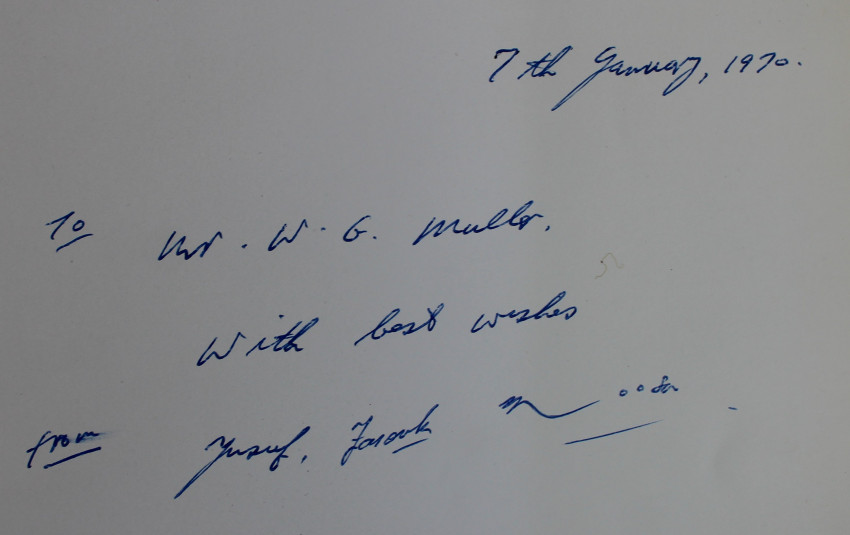 7th January, 1970.
To Mr. W. G. Muller.
With best wishes
from Yusuf, Farouk Moosa